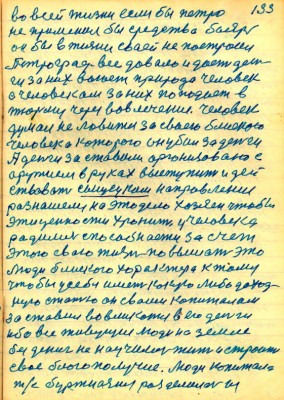 133
во всей жизни если бы петро
не применил бы средства
он бы в жизни своей не построил
Петроград все давало и дает ден
ги за них воюет природа человек
а человекам за них попадает в
тюрму через вовлечение. Человек
думал не ловити за своего близкого
человека которого он убил за денги
А денги заставили организовано с
оружием в руках выступит и дей
ствоват направлении
на это дело хозяен чтобы
эти ценности хронит у человека
родилис способности за счет
этого свою жизн повышат это
люди близкого характера к тому
чтобы у себя имет либо доход
ную статю он своим копиталом
заставил вовлекати в его денги
ибо все живущии люди на земле
бы денег не научилис жит и строит
свое благополучие. Люди копитала
т/с буржуазия разделилас и